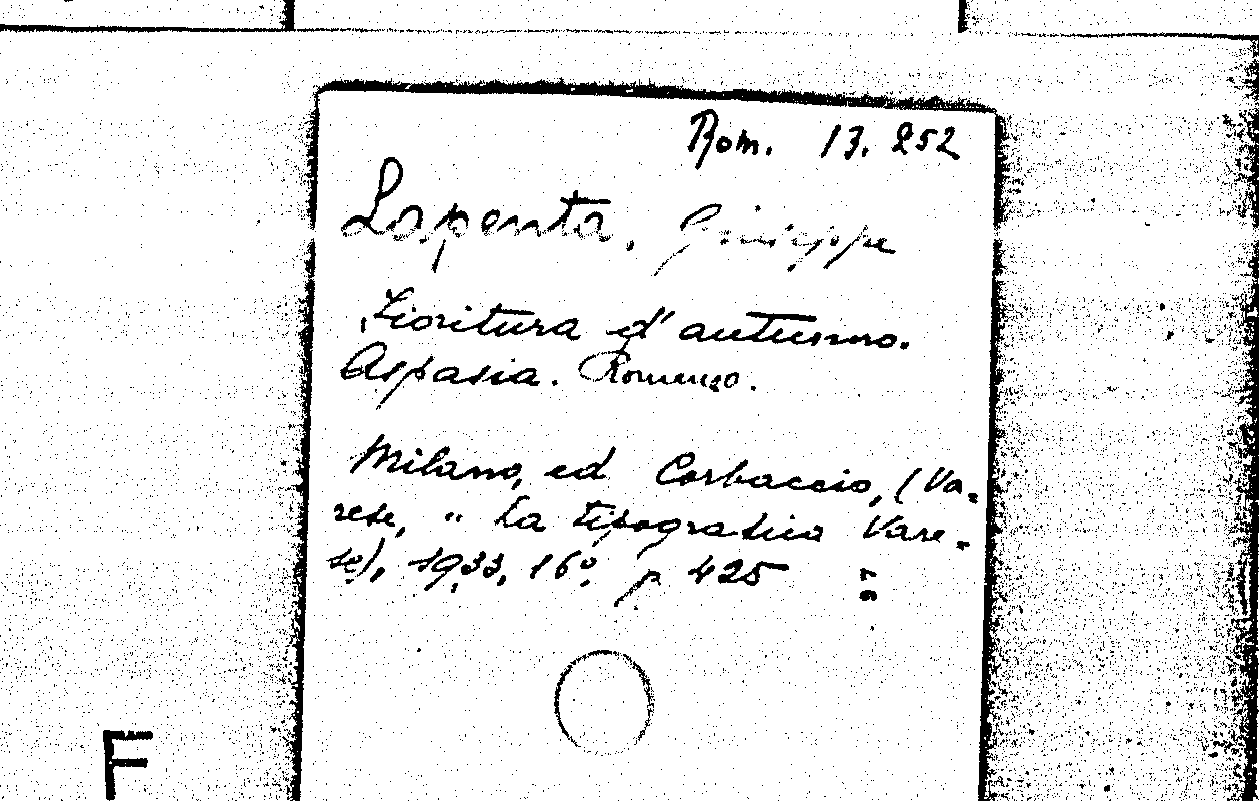 Rom. 13. 252
Lapenta, Giuseppe
Fioritura d'autunno.
Aspasia. Romanzo.
Milano, ed Corbaccio, (Va-
rese, " La tipografica Vare-
se), 1933, 16° p 425
F